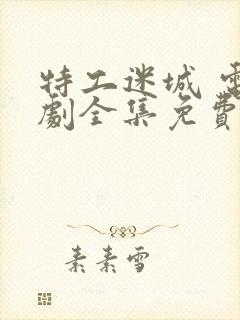 特工迷城 電
劇全集免費
素素雪